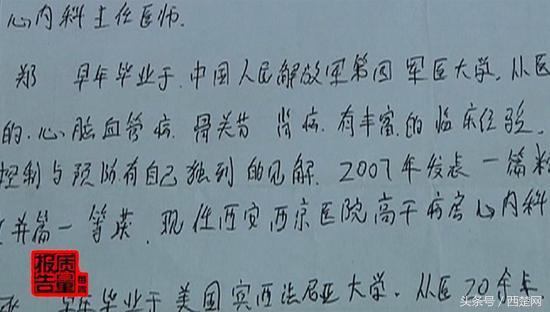 心内科主任医师.
郑 早年毕业于.中国人民解放军第四军医大学,从医
的.心脑血管病.骨关节 肾病.有丰富.的临床经验.
控制与预防有自己独到的见解.2007年发表一篇
并篇一等奖.现任西安西京医院高干病房心内科
早年毕业于美国宾西法尼亚大学.从医20余年
质量报告
每周
头条号/西楚网